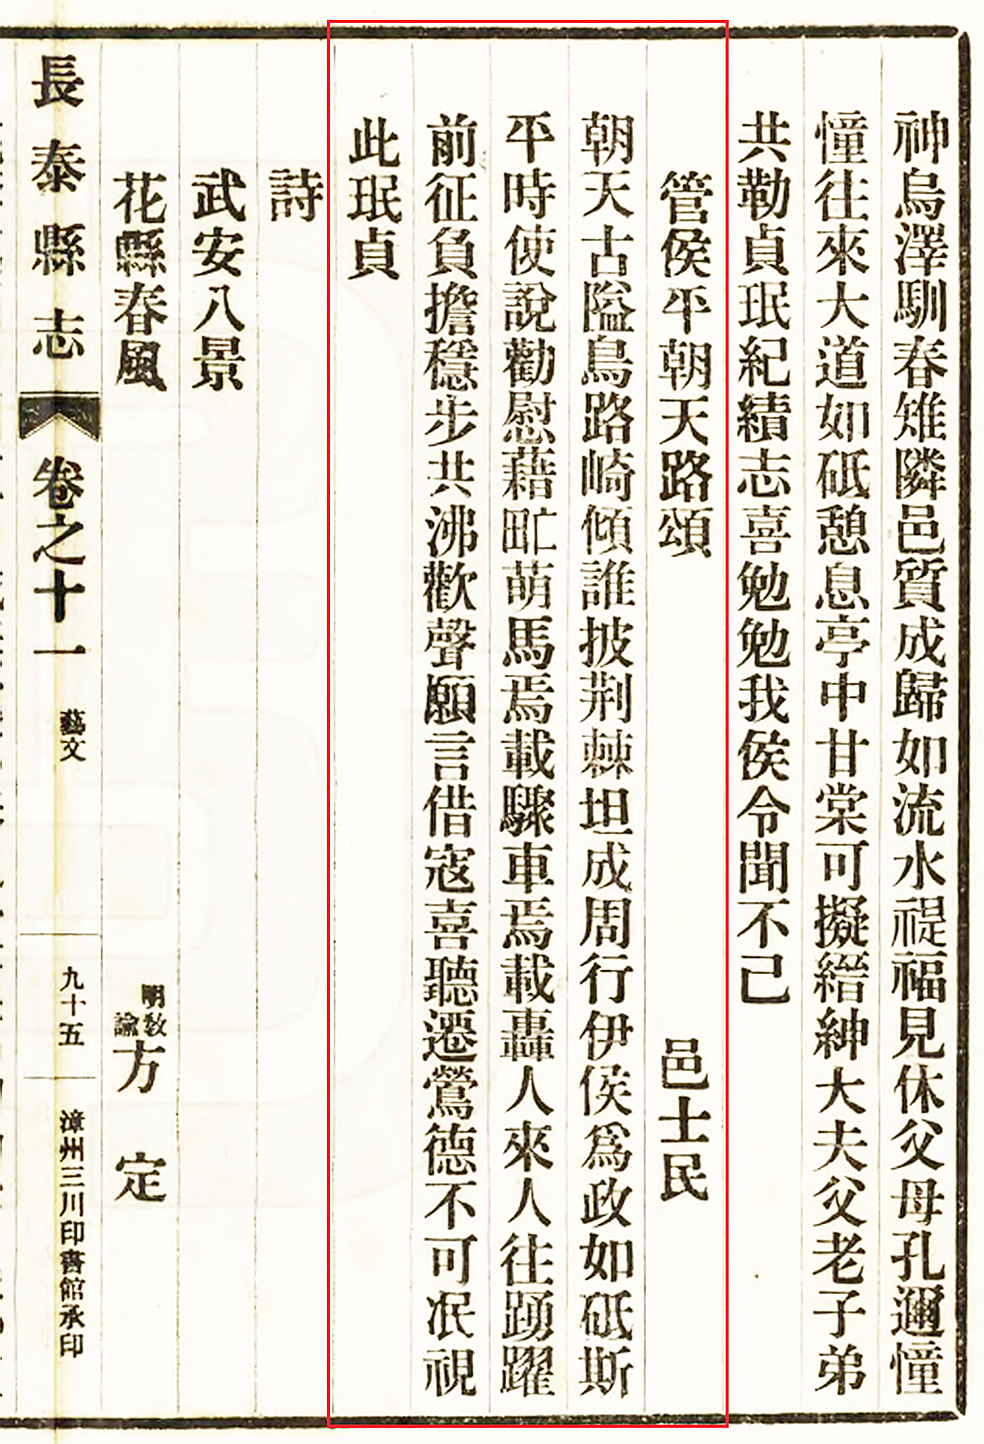 神烏澤馴春雉隣邑質成歸如流水禔福見休父母孔邇憧
憧往來大道如砥憩息亭中甘棠可擬縉紳大夫父老子弟
共勒貞珉紀績志喜勉勉我侯令聞不已
管侯平朝天路頌 邑士民
朝天古隘鳥路崎傾誰披荆棘坦成周行伊侯爲政如砥斯
平時使說勸慰藉甿萌馬焉載驟車焉載轟人來人往踴躍
前征負擔穩步共沸歡聲願言借寇喜聽遷鶯德不可泯視
此珉貞
詩
武安八景
花縣春風 明教諭方 定
長泰縣志 卷之十一 藝文 九十五 漳州三川印書館承印